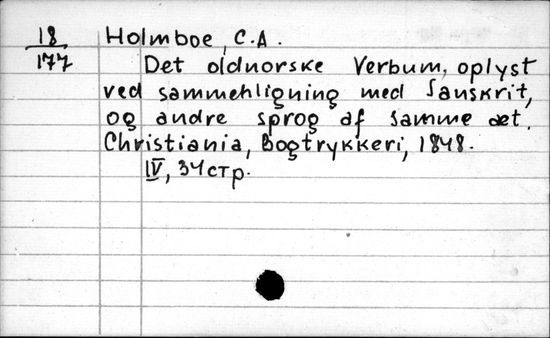 18/177 Holmboe, C.A.
Det oldnorske Verbum, oplyst
ved sammehligning med Sanskrit,
og andre sprog af samme æt.
Christiania, Bogtrykkeri, 1848.
IV, 34 стр.